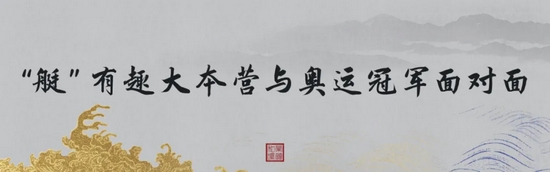 “艇”有趣大本营与奥运冠军面对面